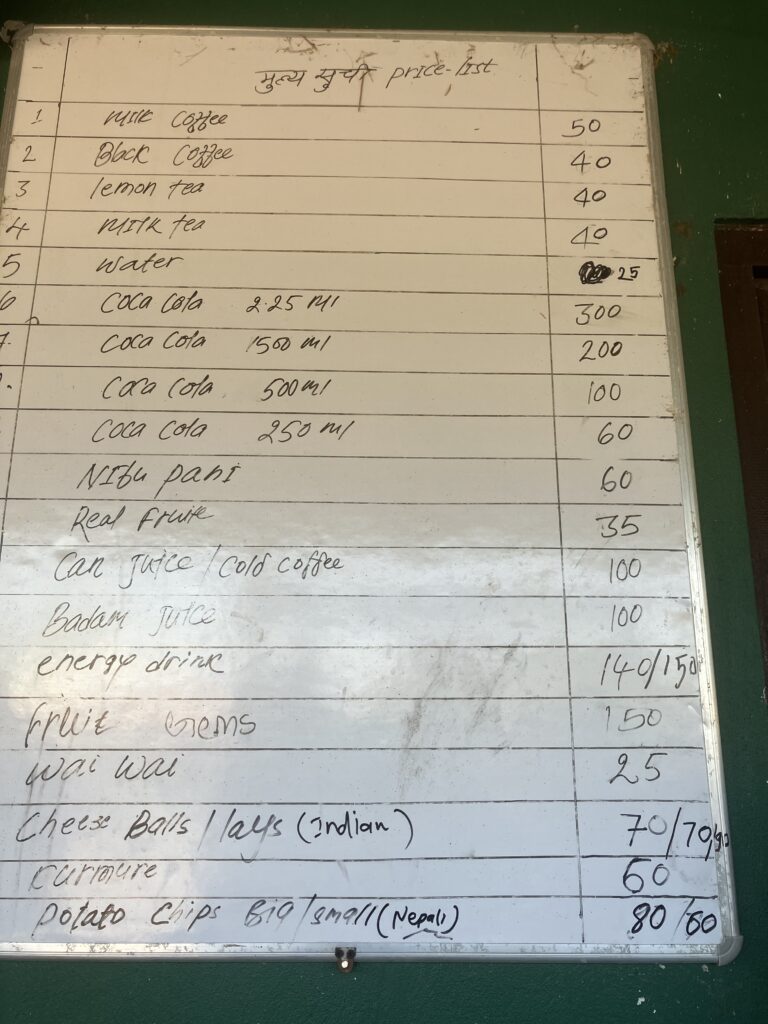 मुल्य सुची price-list
1 Milk Coffee 50
2 Black Coffee 40
3 lemon tea 40
4 milk tea 40
5 water 25
6 Coca Cola 2.25 Ml 300
7. Coca Cola 1500 ml 200
Coca Cola 500ml 100
Coca Cola 250 ml 60
Nibu pani 60
Real Fruite 35
Can Juice / Cold coffee 100
Badam Juice 100
energy drink 140/150
fruit Gems 150
wai wai 25
Cheese Balls / lays (Indian) 70/70,
Kurmure 60
potato Chips Big / small (Nepali) 80/60